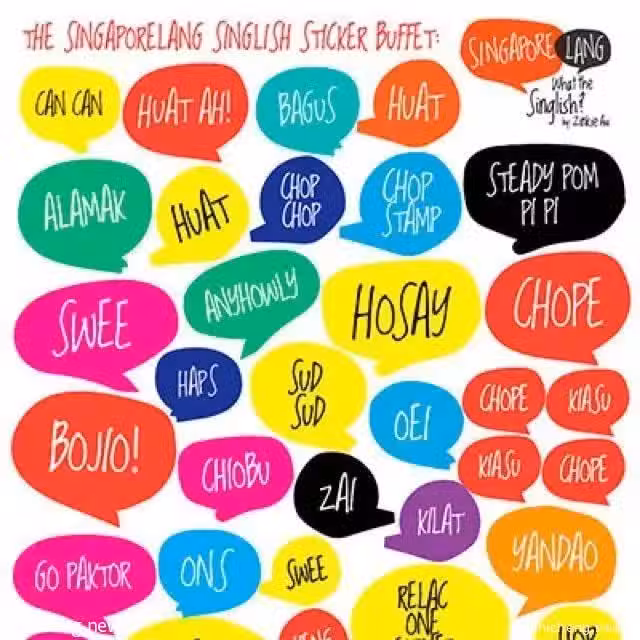 THE SINGAPORELANG SINGLISH STICKER BUFFET:
SINGAPORE LANG
What the
Singlish?
CAN CAN
HUAT AH!
BAGUS
HUAT
ALAMAK
HUAT
CHOP
CHOP
CHOP
STAMP
STEADY POM
PI PI
SWEE
ANYHOWLY
HOSAY
CHOPE
HAPS
SUD
SUD
OEI
CHOPE
KIASU
BOJIO!
CHIOBU
KIASU
CHOPE
ZAI
KILAT
YANDAO
GO PAKTOR
ONS
SWEE
RELAC
ONE